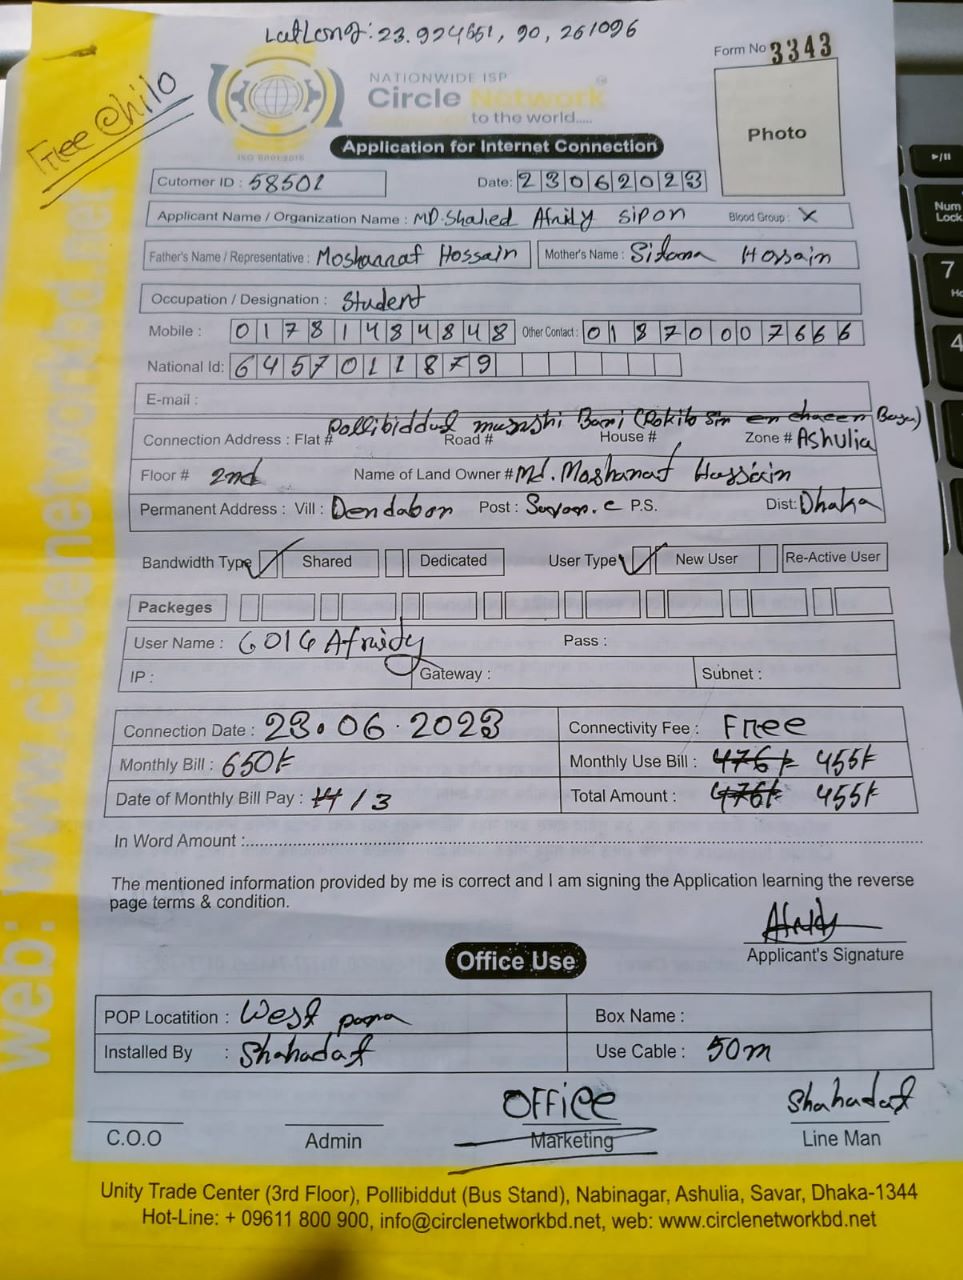 LatLong: 23.924651, 90, 261096
Form No 3343
Free Chilo
NATIONWIDE ISP
Circle Network
to the world.....
ISO 9001:2015
Photo
Application for Internet Connection
Cutomer ID : 58501
Date: 23062023
Applicant Name / Organization Name : MD. Shahed Afridy Sipon
Blood Group : X
Father's Name / Representative : Mosharraf Hossain
Mother's Name : Hossain
Occupation / Designation : Student
Mobile : 01781484848
Other Contact : 01870007666
National Id: 6457011879
E-mail :
Pollibiddut munshi Bari
Connection Address : Flat # Road # House # Zone # Ashulia
Floor # 2nd Name of Land Owner # Md. Mosharaf Hossain
Permanent Address : Vill : Dendabor Post : P.S. Dist: Dhaka
Bandwidth Type Shared Dedicated User Type New User Re-Active User
Packeges
User Name : Afridy Pass :
IP : Gateway : Subnet :
Connection Date : 23.06.2023 Connectivity Fee : Free
Monthly Bill : 650t Monthly Use Bill : 476t 455t
Date of Monthly Bill Pay : 14 / 3 Total Amount : 476t 455t
In Word Amount :
The mentioned information provided by me is correct and I am signing the Application learning the reverse
page terms & condition.
Afridy
Applicant's Signature
Office Use
POP Locatition : West para Box Name :
Installed By : Shahadat Use Cable : 50m
OFFice Shahadat
C.O.O Admin Marketing Line Man
Unity Trade Center (3rd Floor), Pollibiddut (Bus Stand), Nabinagar, Ashulia, Savar, Dhaka-1344
Hot-Line: + 09611 800 900, info@circlenetworkbd.net, web: www.circlenetworkbd.net
web: www.circlenetworkbd.net
Num
Lock
7
4